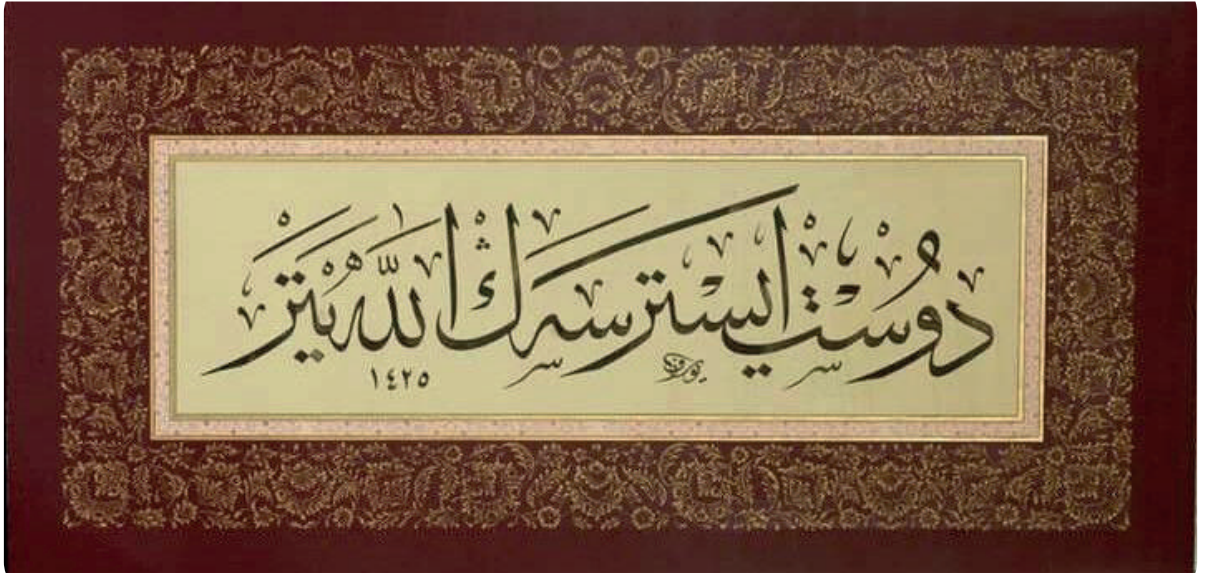 دوست ایسترسەڭ الله يتر
١٤٢٥